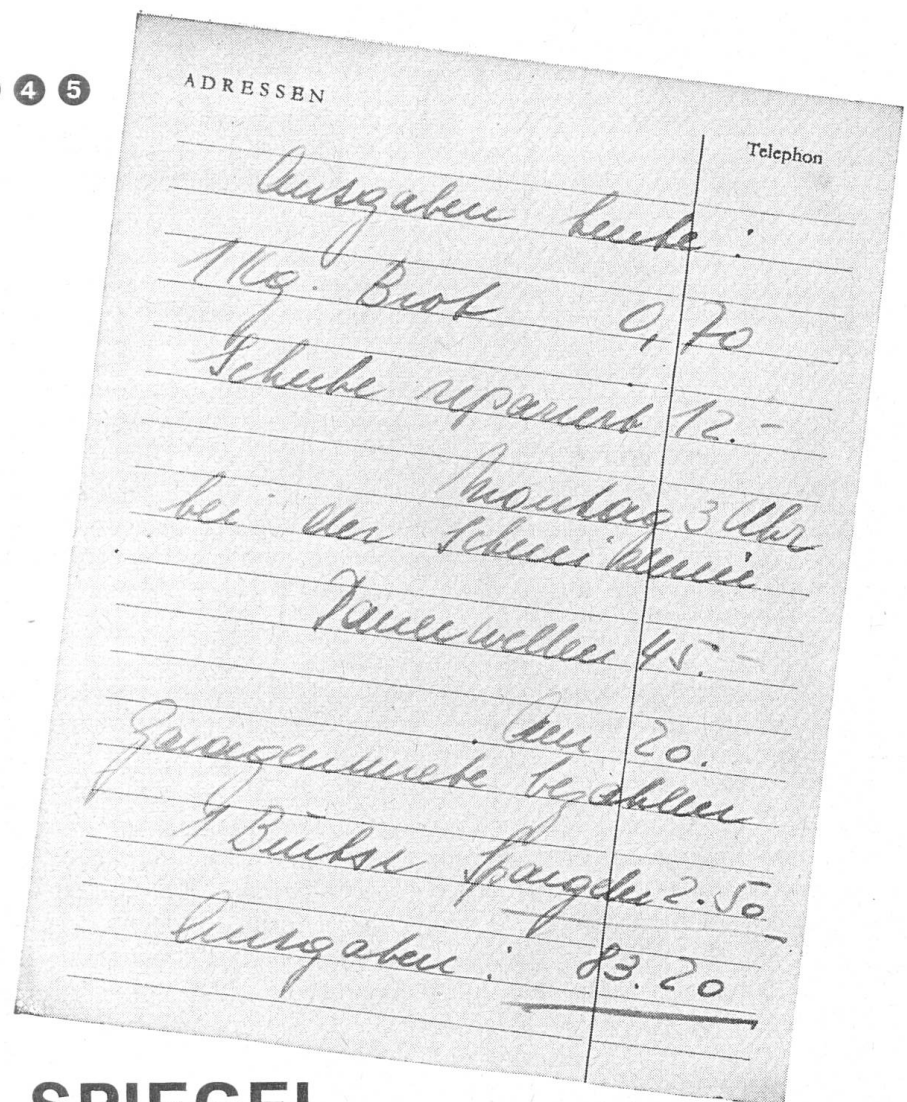 4 5
ADRESSEN
Telephon
Ausgaben heute:
1 Kg. Brot 0,70
Schuhe repariert 12.-
Montag 3 Uhr
bei der Schneiderin
Dauerwellen 45.-
Am 20.
Garagenmiete bezahlen
1 Büchse Spargeln 2.50
Ausgaben: 83.20
SPIEGEL